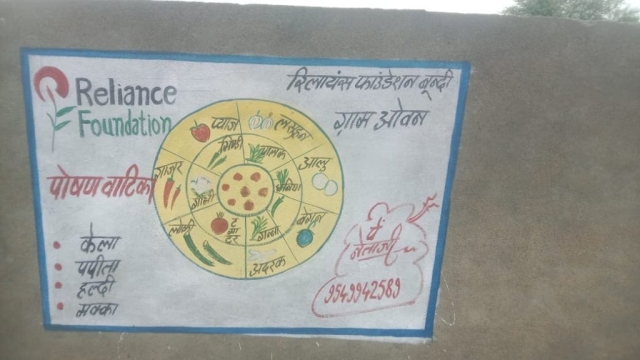 Reliance
Foundation
रिलायंस फाउंडेशन बून्दी
ग्राम ओवन
पोषण वाटिका
केला
पपीता
हल्दी
मक्का
प्याज
लहसुन
आलु
बेंगन
अदरक
लौकी
गाजर
भिण्डी
पालक
धनिया
गन्ना
टमाटर
गोभी
पें
नेताजी
9549942589